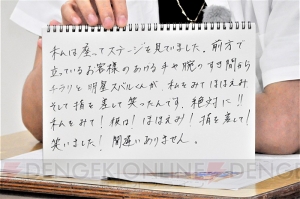 私は座ってステージを見ていました。前方で
立っているお客様のあげる手や腕のすき間から
チラリと明星スバルくんが、私をみてほほえみ
そして指を差して笑ったんです。絶対に!!
私をみて!彼は!ほほえみ!指を差して!
笑いました!間違いありません。
DENGEKIONLINE DENGEKI